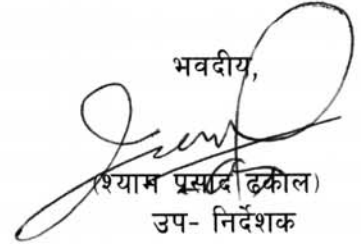 भवदीय,
(श्याम प्रसाद ढकाल)
उप- निर्देशक